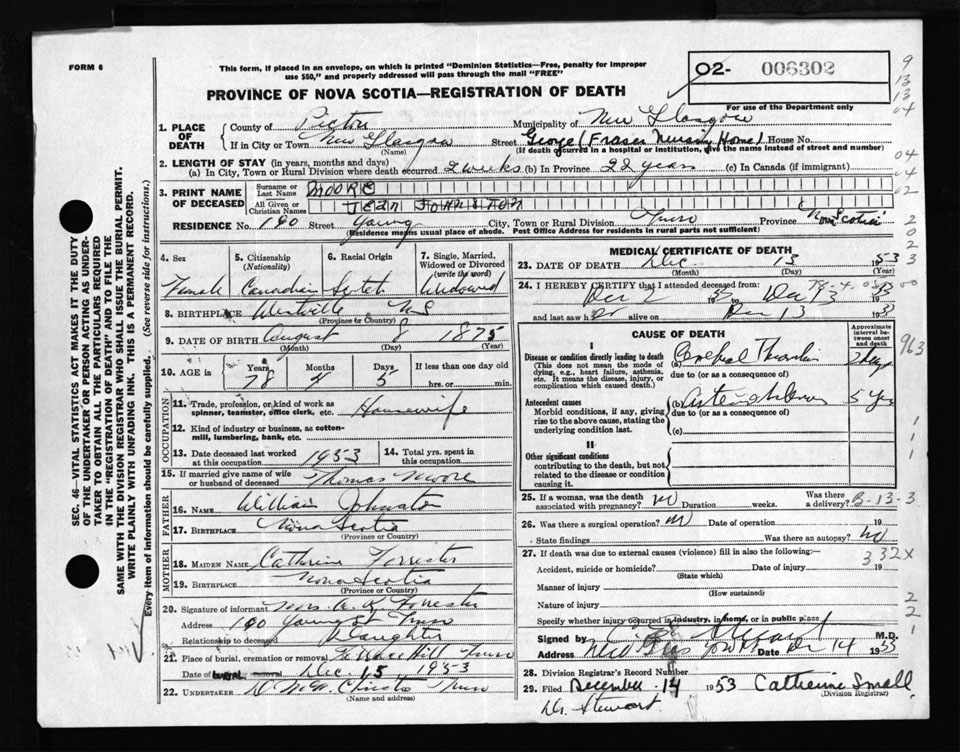 FORM 6
This form, if placed in an envelope, on which is printed "Dominion Statistics—Free, penalty for improper
use $50," and properly addressed will pass through the mail "FREE"
PROVINCE OF NOVA SCOTIA—REGISTRATION OF DEATH
02- 006302
For use of the Department only
1. PLACE OF DEATH
County of Pictou Municipality of New Glasgow
If in City or Town New Glasgow (Name) Street George (Fraser Nursing Home) House No.
(If death occurred in a hospital or institution, give the name instead of street and number)
2. LENGTH OF STAY (in years, months and days)
(a) In City, Town or Rural Division where death occurred 2 weeks (b) In Province 22 years (c) In Canada (if immigrant)
3. PRINT NAME OF DECEASED
Surname or Last Name MOORE
All Given or Christian Names JEAN JOHNSTON
RESIDENCE No. 190 Street Young City, Town or Rural Division Truro Province Nova Scotia
(Residence means usual place of abode. Post Office Address for residents in rural parts not sufficient)
4. Sex Female
5. Citizenship (Nationality) Canadian
6. Racial Origin Scotch
7. Single, Married, Widowed or Divorced (write the word) Widowed
8. BIRTHPLACE Westville N S
(Province or Country)
9. DATE OF BIRTH August 8 1875
(Month) (Day) (Year)
10. AGE in Years 78 Months 4 Days 5 If less than one day old
hrs. or min.
OCCUPATION
11. Trade, profession, or kind of work as spinner, teamster, office clerk, etc. Housewife
12. Kind of industry or business, as cotton-mill, lumbering, bank, etc.
13. Date deceased last worked at this occupation 1953
14. Total yrs. spent in this occupation
15. If married give name of wife or husband of deceased Thomas Moore
FATHER
16. Name William Johnston
17. Birthplace Nova Scotia
(Province or Country)
MOTHER
18. Maiden Name Catherine Forrester
19. Birthplace Nova Scotia
(Province or Country)
20. Signature of informant Mrs.
Address 190 Young St Truro
Relationship to deceased Daughter
21. Place of burial, cremation or removal Truro
Date of burial, removal Dec. 15 1953
22. UNDERTAKER Truro
(Name and address)
MEDICAL CERTIFICATE OF DEATH
23. DATE OF DEATH Dec. 13 1953
(Month) (Day) (Year)
24. I HEREBY CERTIFY that I attended deceased from:
Dec 2 1953 Dec 13 1953
and last saw her alive on Dec 13 1953
CAUSE OF DEATH
Approximate interval between onset and death
I
Disease or condition directly leading to death
(This does not mean the mode of dying, e.g., heart failure, asthenia, etc. It means the disease, injury, or complication which caused death.)
(a) Cerebral
due to (or as a consequence of)
Antecedent causes
Morbid conditions, if any, giving rise to the above cause, stating the underlying condition last.
(b) Arteriosclerosis 5 yrs
due to (or as a consequence of)
(c)
II
Other significant conditions
contributing to the death, but not related to the disease or condition causing it.
25. If a woman, was the death associated with pregnancy? no Duration weeks. Was there a delivery?
B-13-3
26. Was there a surgical operation? no Date of operation 19
State findings Was there an autopsy? no
27. If death was due to external causes (violence) fill in also the following:—
332X
Accident, suicide or homicide? Date of injury 19
(State which)
Manner of injury
(How sustained)
Nature of injury
Specify whether injury occurred in industry, in home, or in public place
Signed by Stewart M.D.
Address Date Dec 14 1953
28. Division Registrar's Record Number
29. Filed December 14 1953 Catherine Small
(Division Registrar)
Dr. Stewart
SEC. 46—VITAL STATISTICS ACT MAKES IT THE DUTY
OF THE UNDERTAKER OR PERSON ACTING AS UNDER-
TAKER TO OBTAIN ALL THE PARTICULARS REQUIRED
IN THE "REGISTRATION OF DEATH" AND TO FILE THE
SAME WITH THE DIVISION REGISTRAR WHO SHALL ISSUE THE BURIAL PERMIT.
WRITE PLAINLY WITH UNFADING INK. THIS IS A PERMANENT RECORD.
Every item of information should be carefully supplied. (See reverse side for instructions.)
9
13
13
04
04
02
2
0
2
3
963
1
1
1
2
2
1